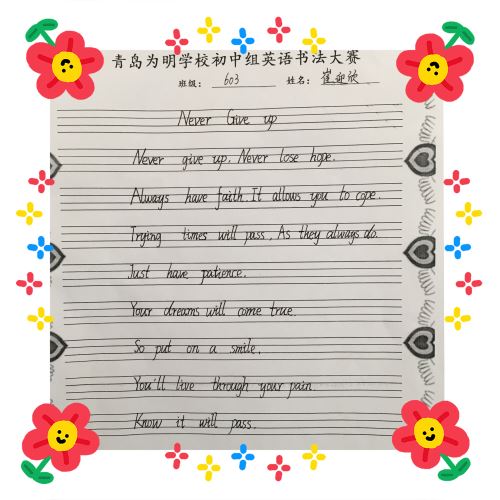 青岛为明学校初中组英语书法大赛
班级： 603 姓名： 崔迎欣
Never Give up
Never give up. Never lose hope.
Always have faith. It allows you to cope.
Trying times will pass, As they always do.
Just have patience.
Your dreams will come true.
So put on a smile.
You'll live through your pain.
Know it will pass.